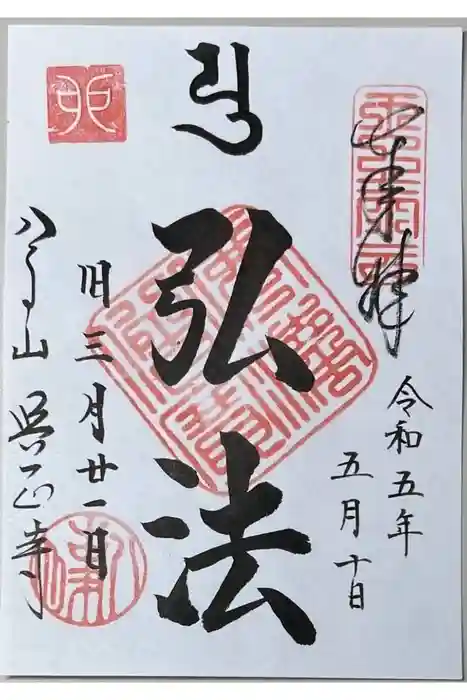 奉拝
令和五年
五月十日
弘法
旧三月廿一日
八事山 興正寺